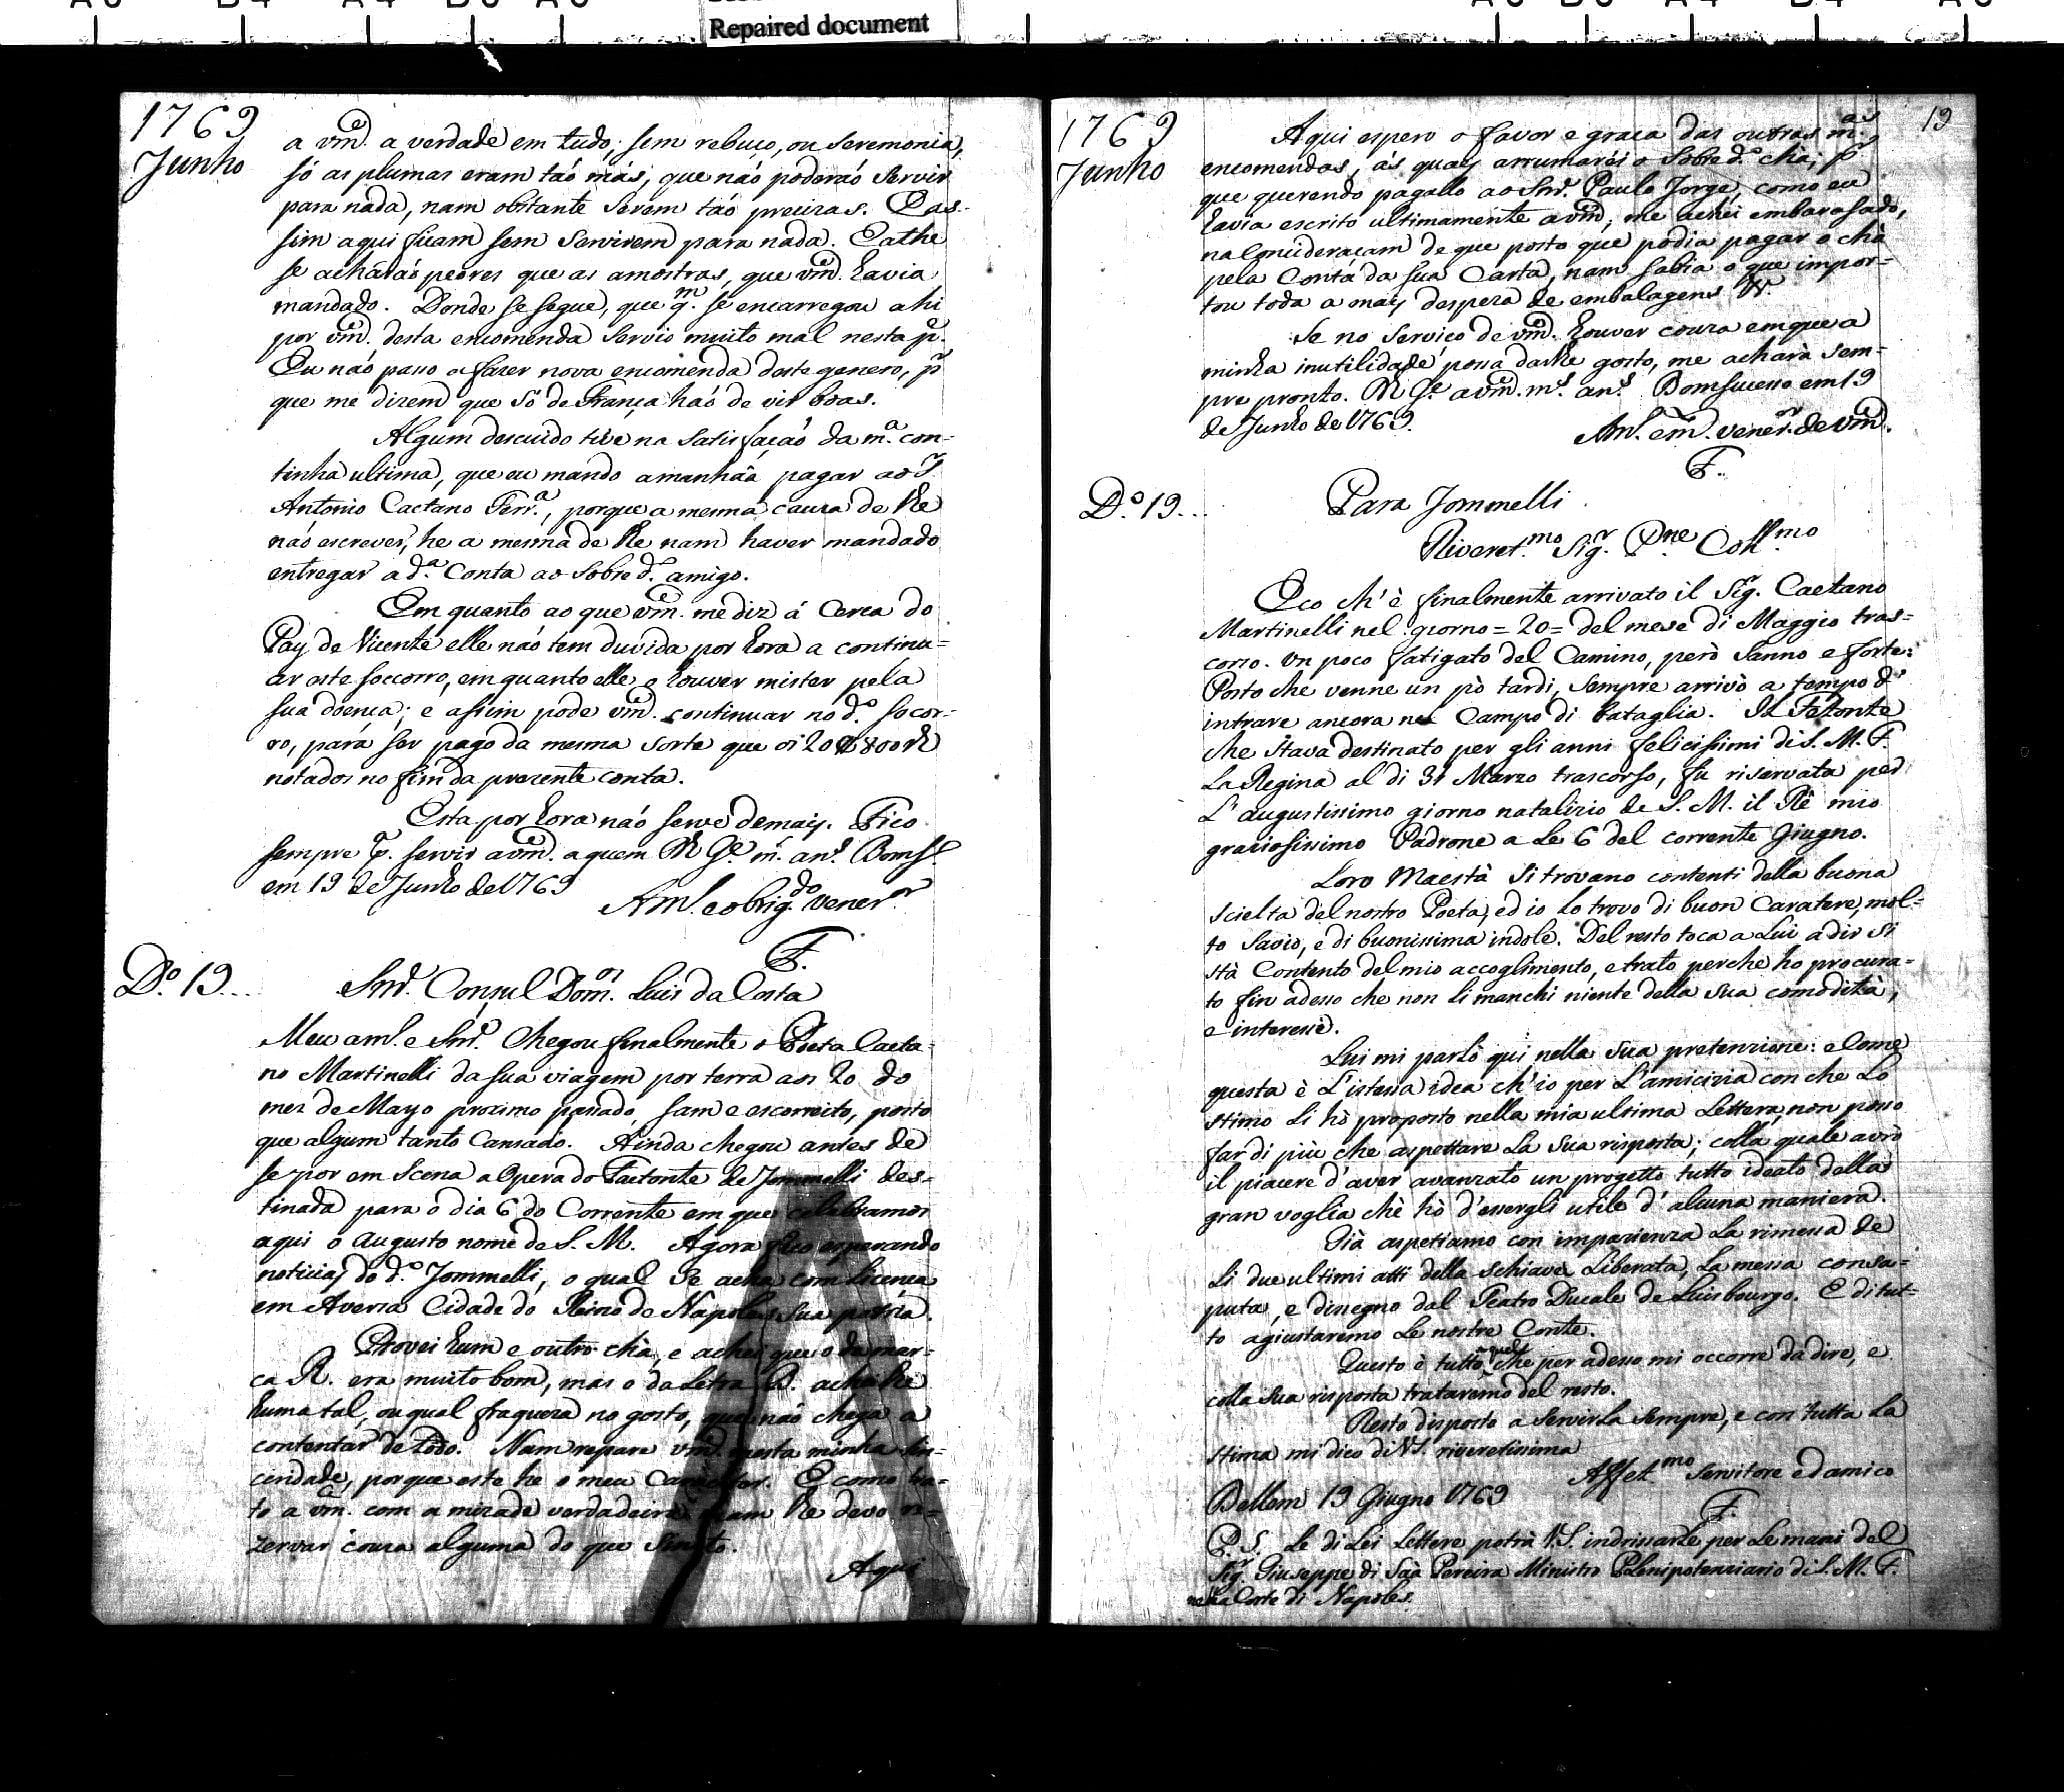 Repaired document
1769
Junho
a vm.ce a verdade em tudo, sem rebuço, ou seremonia,
só as plumas eram táo más, que náo poderáo servir
para nada, nam obstante serem táo precizas. E as-
sim aqui ficam sem servirem para nada. E athe
se acháráo peores que as amostras, que vm.ce havia
mandado. Donde se segue, que q.m se encarregou ahi
por vm.ce desta encomenda servio muito mal nesta p.e
Eu náo passo a fazer nova encomenda deste genero, p.r
que me dizem que só de França háo de vir boas.
Algum descuido tive na satisfaçaó da m.a con-
tinha ultima, que eu mando amanhãa pagar ao S.r
Antonio Caetano Ferr.a, porque a mesma cauza de lhe
náo escrever, he a mesma de lhe nam haver mandado
entregar a d.a Conta ao sobre d.o amigo.
Em quanto ao que vm.ce me diz á cerca do
Pay de Vicente elle náo tem duvida por hora a continu-
ar este soccorro, em quanto elle o houver mister pela
sua doença; e assim pode vm.ce continuar no d.o socor-
ro, para ser pago da mesma sorte que os 20$800 rs
notados no fim da prezente conta.
Esta por hora náo serve demais. Fico
sempre p.a servir a vm.ce a quem N Ge m.s an.s Boms.o
em 19 de Junho de 1769
Am.o e obrig.do vener.or
F.
D.o 19...
Snr. Consul Dom.os Luis da Costa
Meu am.o e Snr. Chegou finalmente o Poeta Caeta-
no Martinelli da sua viagem por terra aos 20 do
mez de Mayo proximo passado, sam e escorreito, posto
que algum tanto Cansado. Ainda chegou antes de
se por em Scena a Opera do Faetonte de Jommelli des-
tinada para o dia 6 do Corrente em que celebramos
aqui o Augusto nome de S. M. Agora fico esperando
noticias do d.o Jommelli, o qual se acha com licença
em Aversa Cidade do Reino de Napoles sua patria.
Provei hum e outro chá, e achei que o da mar-
ca R. era muito bom, mas o da Letra B. achei lhe
huma tal, ou qual fraqueza no gosto, que náo chega a
contentar de todo. Nam repare vm.ce nesta minha sin-
ceridade, porque este he o meu Caracter. E como tra-
to a vm.ce com amizade verdadeira nam lhe devo re-
zervar couza alguma do que sinto.
Aqui
1769
Junho
19
Aqui espero o favor e graça das outras m.as
encomendas, ás quaes arrumaréi o sobre d.o chá; p.r
que querendo pagallo ao Snr. Paulo Jorge, como eu
havia escrito ultimamente a vm.ce, me achei embarasado,
na Consideraçam de que posto que podia pagar o chá
pela Conta da sua Carta, nam sabia o que impor-
tou toda a mais despeza de embalagens &.
Se no serviço de vm.ce houver couza em que a
minha inutilidade possa darlhe gosto, me achará sem-
pre pronto. N Ge a vm.ce m.s an.s Bomsucesso em 19
de Junho de 1769.
Am.o e m.to vener.or de vm.ce
F.
D.o 19...
Para Jommelli
Riveret.mo Sig.r Pne Coll.mo
Eco ch' è finalmente arrivato il Sig.r Caetano
Martinelli nel giorno = 20 = del mese di Maggio tras-
corso. Un poco fatigato del Camino, però sanno e forte:
Posto che venne un pò tardi, sempre arrivò a tempo d'
intrare ancora nel Campo di bataglia. Il Fetonte
che stava destinato per gli anni felicissimi di S. M. F.
La Regina al di 31 Marzo trascorso, fu riservata per
L'augustissimo giorno natalizio de S. M. il Rè mio
graziosissimo Padrone a Le 6 del corrente Giugno.
Loro Maestà si trovano contenti della buona
scielta del nostro Poeta, ed io Lo trovo di buon Caratere, mol-
to savio, e di buonissima indole. Del resto toca a Lui a dir si
stà Contento del mio accoglimento, e trato perche ho procura-
to fin adesso che non Li manchi niente della sua comodità,
e interesse.
Lui mi parlò qui nella sua pretenzione: e Come
questa è L'istessa idea ch'io per L'amicizia con che Lo
stimo Li hò proposto nella mia ultima Lettera, non posso
far di più che aspettare La sua risposta; colla quale avrò
il piacere d'aver avanzato un progetto tutto ideato dalla
gran voglia chè hò d'essergli utile d'alcuna maniera.
Già aspetiamo con impazienza La rimessa de
Li due ultimi atti della Schiava Liberata, La messa consa-
puta, e disegno dal Teatro Ducale de Luisbourgo. E di tut-
to agiustaremo Le nostre Conte.
Questo è tutto quel che per adesso mi occorre da dire, e
colla sua risposta trataremo del resto.
Resto disposto a servirLa sempre, e con tutta La
stima mi dico di V.S. riveretissima
Affet.mo Servitore ed amico
Bellem 19 Giugno 1769
F.
P. S. Le di Lei Lettere potrà V.S. indrissarle per Le mani del
Sig.r Giuseppe di Saà Pereira Ministro Plenipotenziario di S. M. F.
nella Corte di Napoles.